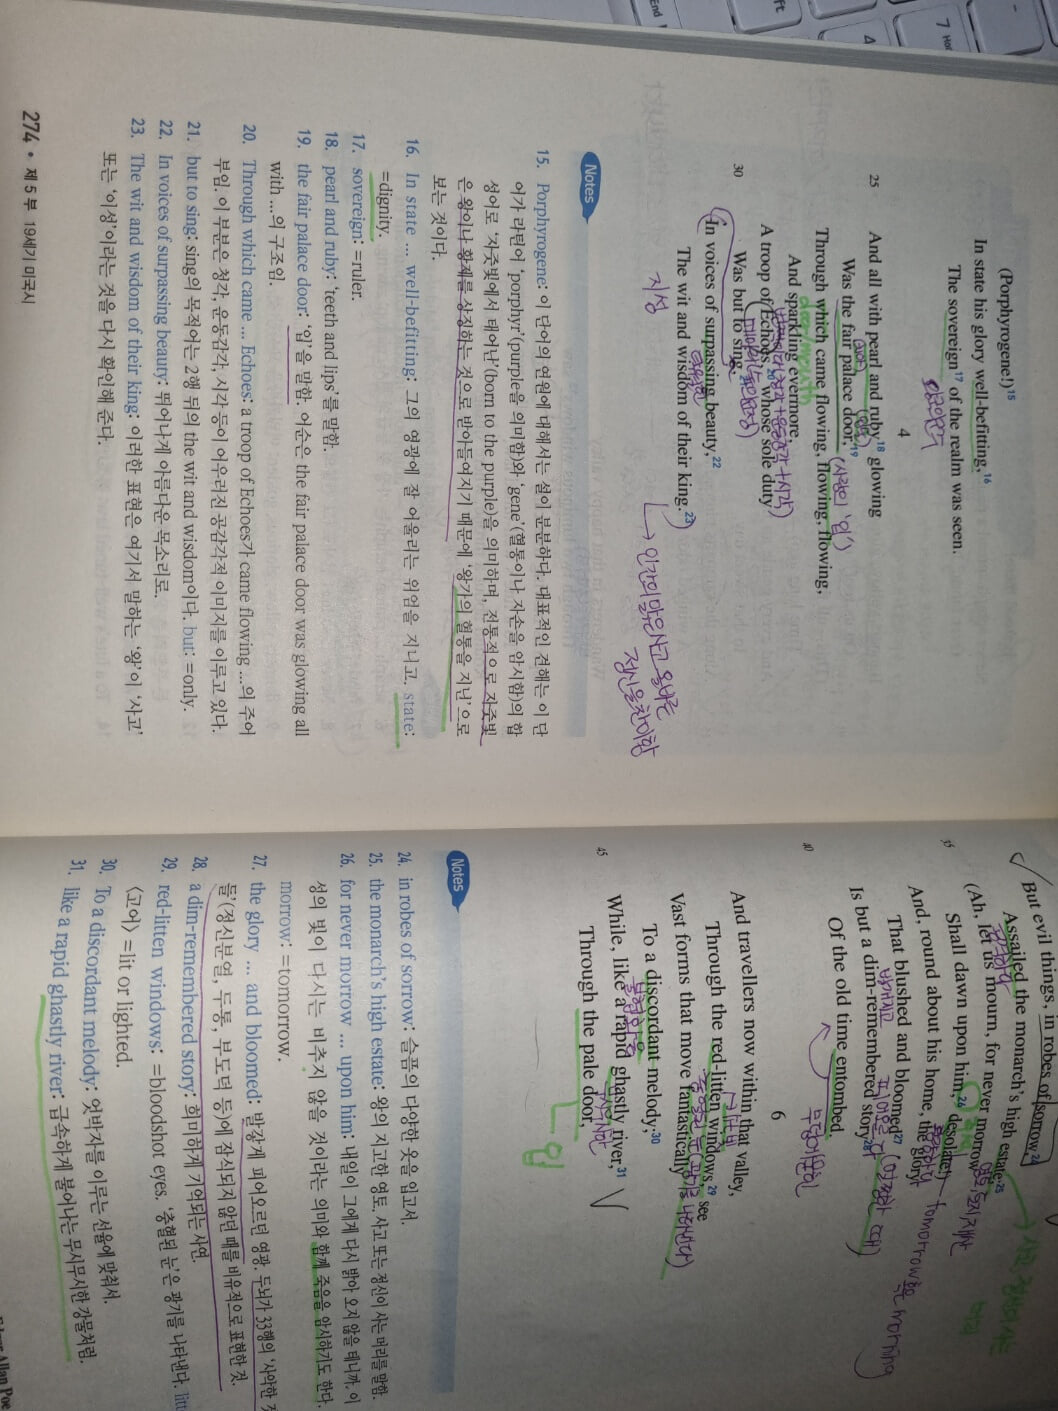 (Porphyrogene!)15
In state his glory well-befitting,16
The sovereign17 of the realm was seen.
4
25 And all with pearl and ruby18 glowing
Was the fair palace door,19
(사람의 '입')
Through which came flowing, flowing, flowing,
door/mouth
And sparkling evermore,
A troop of Echoes,20 whose sole duty
Was but to sing,21
30 (In voices of surpassing beauty,22
The wit and wisdom of their king.23)
지성
Notes
15. Porphyrogene: 이 단어의 연원에 대해서는 설이 분분하다. 대표적인 견해는 이 단
어가 라틴어 'porphyr'(purple을 의미함)와 'gene'(혈통이나 자손을 암시함)의 합
성어로 '자줏빛에서 태어난'(born to the purple)을 의미하며, 전통적으로 자줏빛
은 왕이나 황제를 상징하는 것으로 받아들여지기 때문에 '왕가의 혈통을 지닌'으로
보는 것이다.
16. In state ... well-befitting: 그의 영광에 잘 어울리는 위엄을 지니고. state:
=dignity.
17. sovereign: =ruler.
18. pearl and ruby: 'teeth and lips'를 말함.
19. the fair palace door: '입'을 말함. 어순은 the fair palace door was glowing all
with ...의 구조임.
20. Through which came ... Echoes: a troop of Echoes가 came flowing ...의 주어
부임. 이 부분은 청각, 운동감각, 시각 등이 어우러진 공감각적 이미지를 이루고 있다.
21. but to sing: sing의 목적어는 2행 뒤의 the wit and wisdom이다. but: =only.
22. In voices of surpassing beauty: 뛰어나게 아름다운 목소리로.
23. The wit and wisdom of their king: 이러한 표현은 여기서 말하는 '왕'이 '사고'
또는 '이성'이라는 것을 다시 확인해 준다.
274 • 제5부 19세기 미국시
But evil things, in robes of sorrow,24
Assailed the monarch's high estate;25
(Ah, let us mourn, for never morrow
35 Shall dawn upon him,26 desolate!)
And, round about his home, the glory
That blushed and bloomed27
Is but a dim-remembered story28
40 Of the old time entombed.
6
And travellers now within that valley,
Through the red-litten windows,29 see
Vast forms that move fantastically
To a discordant melody;30
45 While, like a rapid ghastly river,31
Through the pale door,
입
Notes
24. in robes of sorrow: 슬픔의 다양한 옷을 입고서.
25. the monarch's high estate: 왕의 지고한 영토. 사고 또는 정신이 사는 머리를 말함.
26. for never morrow ... upon him: 내일이 그에게 다시 밝아 오지 않을 테니까. 이
성의 빛이 다시는 비추지 않을 것이라는 의미와 함께 죽음을 암시하기도 한다.
morrow: =tomorrow.
27. the glory ... and bloomed: 발갛게 피어오르던 영광. 두뇌가 33행의 '사악한
들'(정신분열, 두통, 부도덕 등)에 잠식되지 않던 때를 비유적으로 표현한 것.
28. a dim-remembered story: 희미하게 기억되는 사연.
29. red-litten windows: =bloodshot eyes. '충혈된 눈'은 광기를 나타낸다.
〈고어〉 =lit or lighted.
30. To a discordant melody: 엇박자를 이루는 선율에 맞춰서.
31. like a rapid ghastly river: 급속하게 불어나는 무시무시한 강물처럼.
Allan Poe